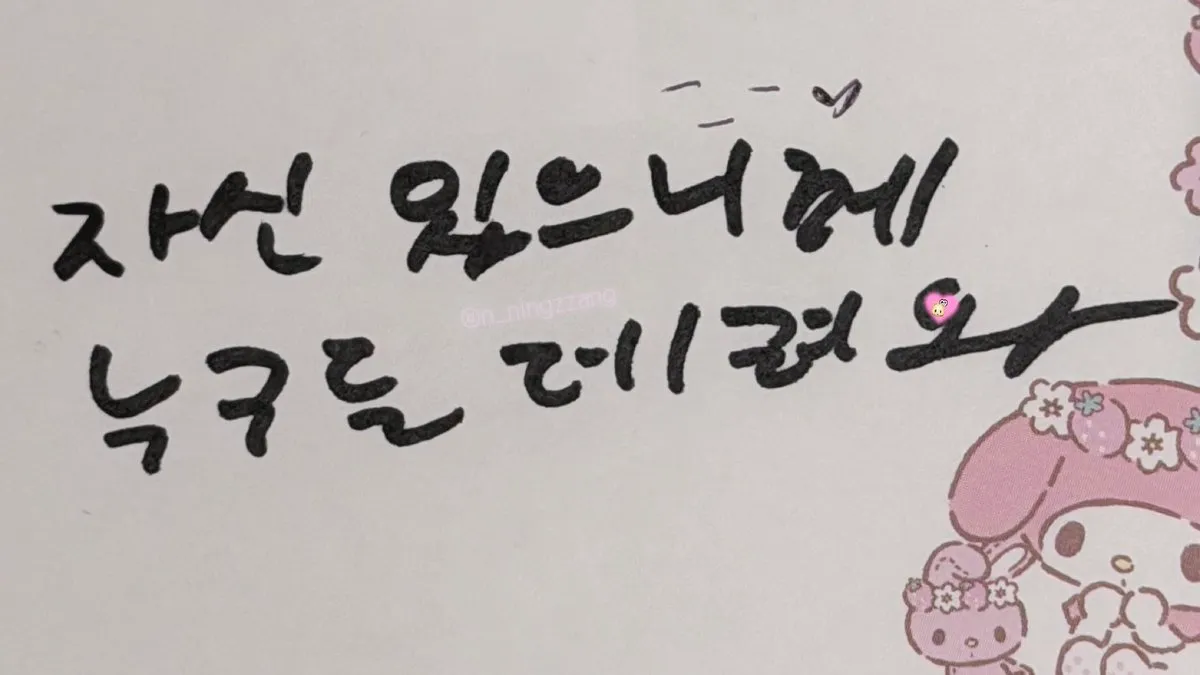 자신 있으니께
누구든 데려와
@n_ningzzang